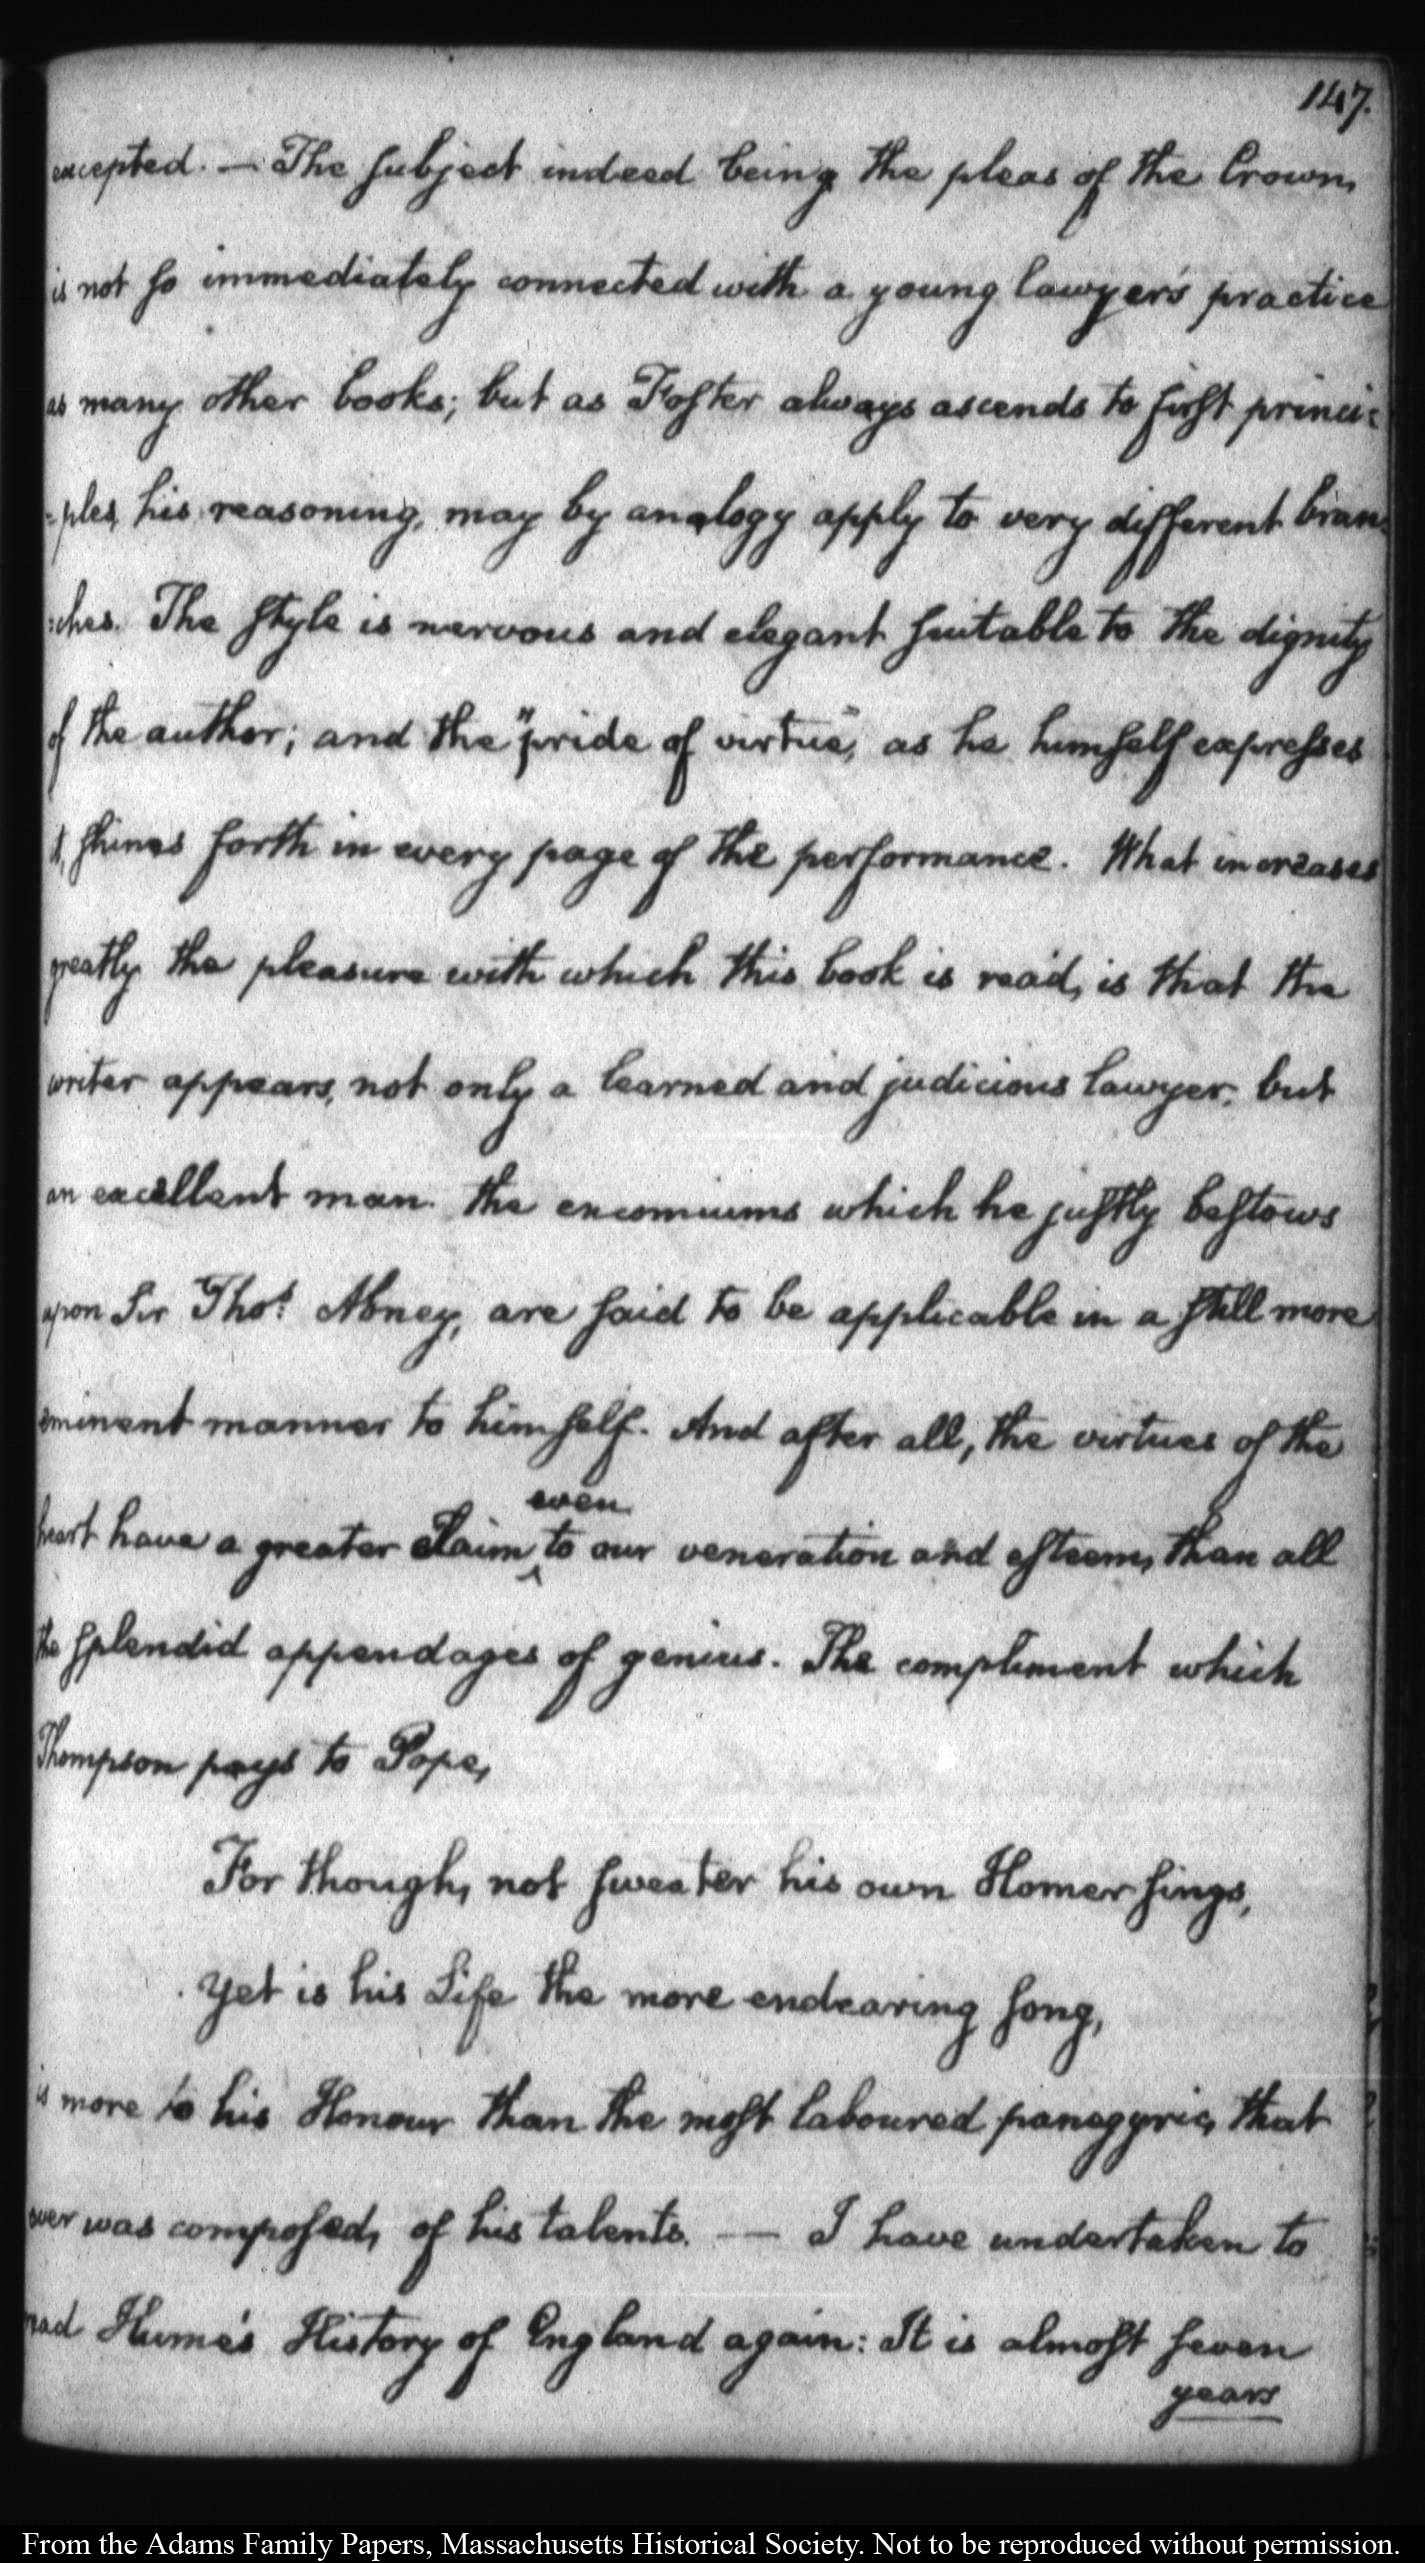 147.
excepted. — The subject indeed being the pleas of the Crown,
is not so immediately connected with a young lawyer's practice
as many other books; but as Foster always ascends to first princi=
=ples, his reasoning, may by analogy apply to very different bran=
=ches. The style is nervous and elegant suitable to the dignity
of the author; and the "pride of virtue," as he himself expresses
it, shines forth in every page of the performance. What increases
greatly the pleasure with which this book is read, is that the
writer appears, not only a learned and judicious lawyer, but
an excellent man. the encomiums which he justly bestows
upon Sir Thos. Abney, are said to be applicable in a still more
eminent manner to himself. And after all, the virtues of the
even
heart have a greater claim ‸ to our veneration and esteem, than all
the splendid appendages of genius. The compliment which
Thompson pays to Pope,
For though, not sweeter his own Homer sings,
Yet is his Life the more endearing song,
is more to his Honour than the most laboured panegyric, that
ever was composed, of his talents. — I have undertaken to
read Hume's History of England again: It is almost seven
years
From the Adams Family Papers, Massachusetts Historical Society. Not to be reproduced without permission.